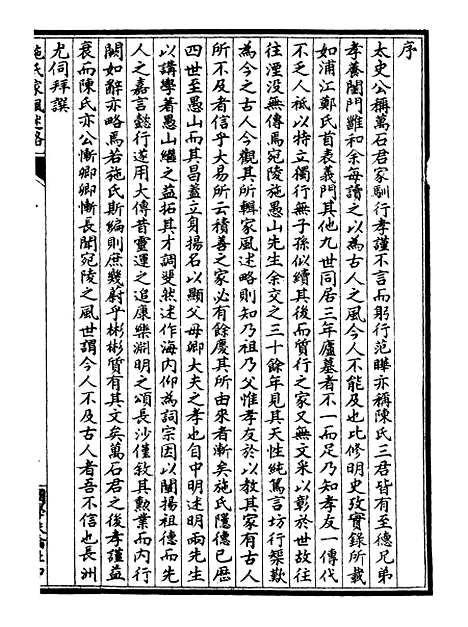 序
太史公稱萬石君家馴行孝謹不言而躬行范曄亦稱陳氏三君皆有至德兄弟
孝養閨門雝和余每讀之以為古人之風今人不能及也比修明史攷實錄所載
如浦江鄭氏首表義門其他九世同居三年廬墓者不一而足乃知孝友一傳代
不乏人祇以持立獨行無子孫似續其後而質行之家又無文采以彰於世故往
往湮没無傳焉宛陵施愚山先生余交之三十餘年見其天性純篤言坊行榘歎
為今之古人今觀其所輯家風述略則知乃祖乃父惟孝友於以教其家有古人
所不及者信乎大易所云積善之家必有餘慶其所由來者漸矣施氏隱德已歷
四世至愚山而其昌葢立身揚名以顯父母卿大夫之孝也自中明述明兩先生
以講學著愚山繼之益拓其才調斐然述作海内仰為詞宗因以闡揚祖德而先
人之嘉言懿行遂用大傳昔靈運之追康樂淵明之頌長沙僅敘其勲業而内行
闕如辭亦略焉若施氏斯編則庶幾蔚乎彬彬質有其文矣萬石君之後孝謹益
衰而陳氏亦公慚卿卿慚長聞宛陵之風世謂今人不及古人者吾不信也長洲
尤侗拜譔
施氏家風述略